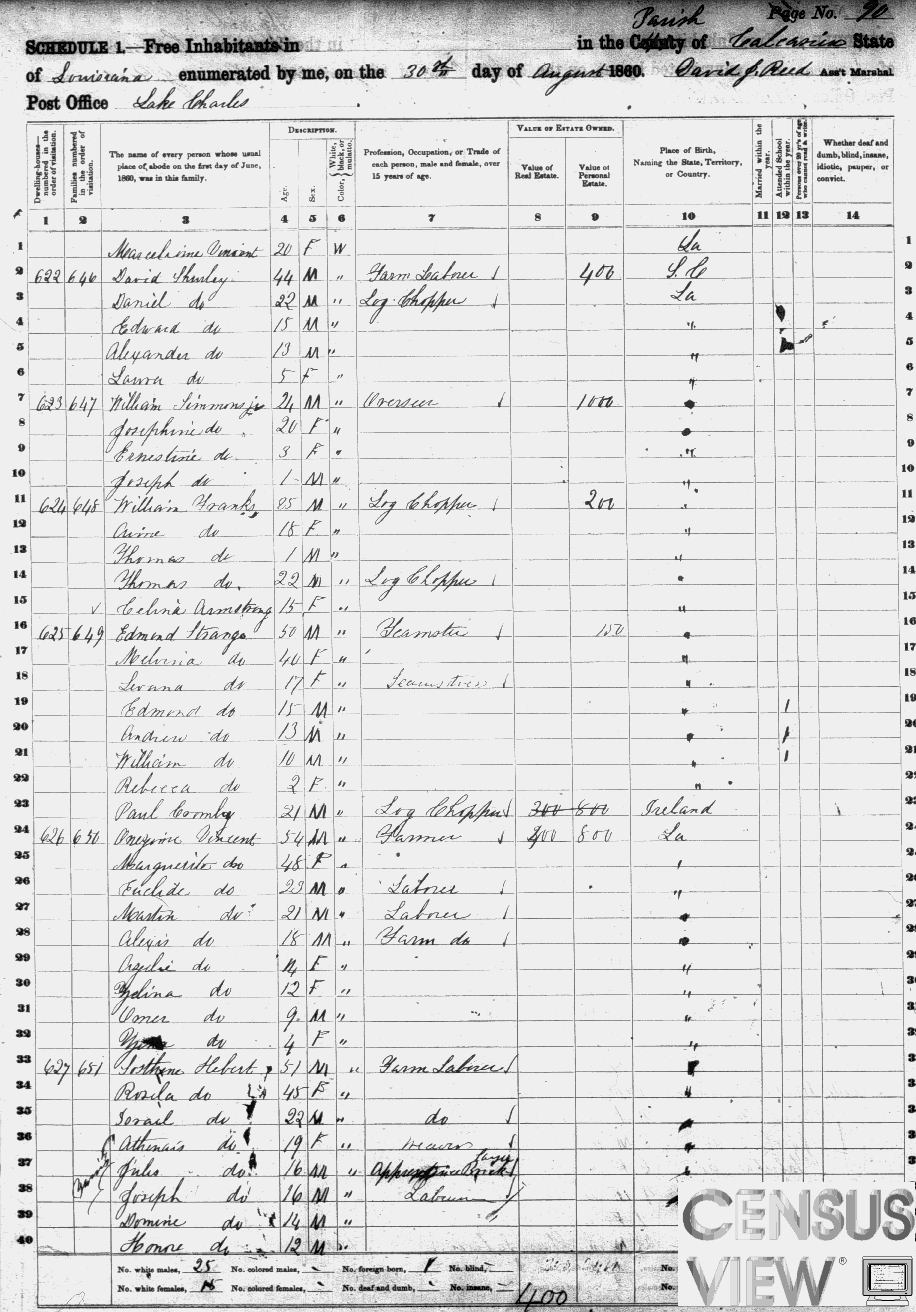 Page No. 90
SCHEDULE 1.—Free Inhabitants in in the County Parish of Calcasieu State
of Louisiana enumerated by me, on the 30th day of August 1860. David J. Reed Ass't Marshal
Post Office Lake Charles
Dwelling-houses—numbered in the order of visitation.
Families numbered in the order of visitation.
The name of every person whose usual place of abode on the first day of June, 1860, was in this family.
DESCRIPTION.
Age.
Sex.
Color, White, black, or mulatto.
Profession, Occupation, or Trade of each person, male and female, over 15 years of age.
VALUE OF ESTATE OWNED.
Value of Real Estate.
Value of Personal Estate.
Place of Birth, Naming the State, Territory, or Country.
Married within the year.
Attended School within the year.
Persons over 20 y'rs of age who cannot read & write.
Whether deaf and dumb, blind, insane, idiotic, pauper, or convict.
1 2 3 4 5 6 7 8 9 10 11 12 13 14
1 Vincent 20 F W La 1
2 622 646 David Shirley 44 M " Farm Laborer 400 S. C
3 Daniel do 22 M " Log Chopper La
4 Edward do 15 M " "
5 Alexander do 13 M " "
6 Laura do 5 F " "
7 623 647 William Simmons jr 24 M " Overseer 1000
8 Josephine do 20 F "
9 Ernestine do 3 F " "
10 Joseph do 1 M " "
11 624 648 William Franks M " Log Chopper 200
12 18 F " "
13 Thomas do 1 M " "
14 Thomas do. 22 M " Log Chopper
15 Celina Armstrong 15 F " "
16 625 649 Edmond Strange 50 M " Teamster 150
17 Melvina do 40 F " "
18 do 17 F " Seamstress "
19 Edmond do 15 M " /
20 Andrew do 13 M " /
21 William do 10 M " /
22 Rebecca do 2 F " "
23 Paul 21 M " Log Chopper 300 800 Ireland
24 626 650 Onezime Vincent 54 M " Farmer 400 800 La
25 Marguerite do 48 F "
26 Euclide do 23 M " Laborer "
27 Martin do 21 M " Laborer
28 Alexis do 18 M " Farm do
29 do 14 F " "
30 Zelina do 12 F " "
31 Omer do 9 M " "
32 do 4 F " "
33 627 651 Sosthene Hebert 51 M " Farm Laborer
34 Rosela do 45 F " "
35 Israil do 22 M " do
36 Athenais do 19 F " weaver
37 Jules do 16 M " Apprentice Brick layer
38 Joseph do 16 M " Laborer
39 Domine do 14 M "
40 Honore do 12 M "
No. white males, 25 No. colored males, No. foreign born, 1 No. blind,
No. white females, 15 No. colored females, No. deaf and dumb, No. insane,
No.
No.
400
CENSUS
VIEW®